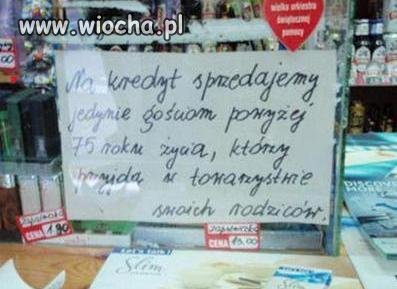 www.wiocha.pl
wielka orkiestra
świątecznej
pomocy
Na kredyt sprzedajemy
jedynie gościom powyżej
75 roku życia, którzy
przyjdą w towarzystwie
swoich rodziców.
zapalniczka
CENA 1.90
zapalniczka
CENA 15.00
Let's talk!
Slim
DISCOVER
MORE